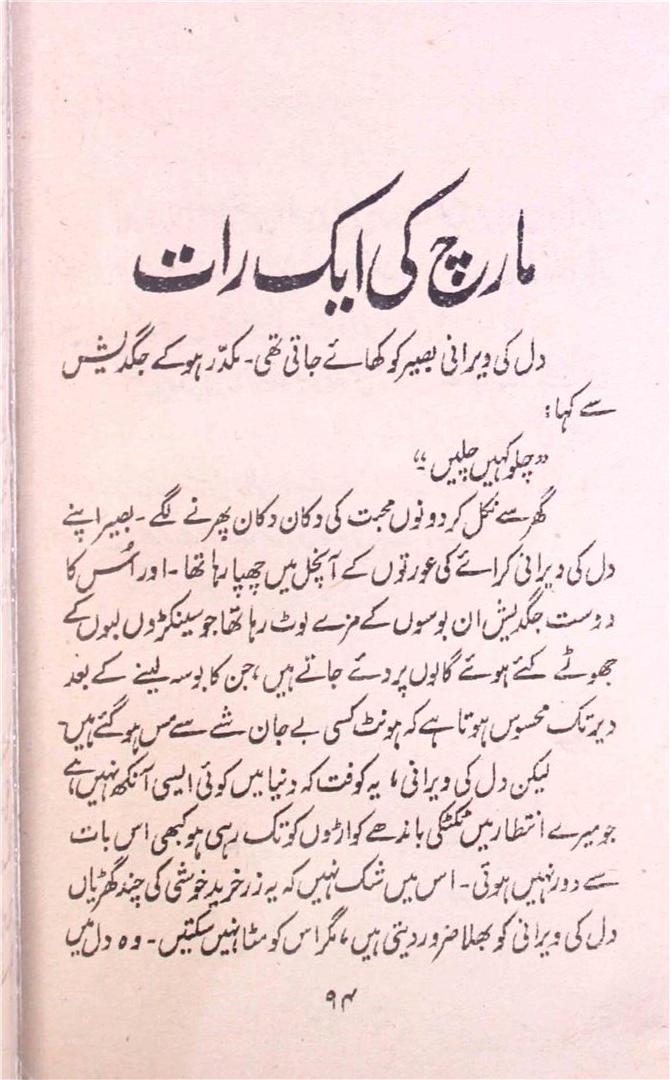 مارچ کی ایک رات
دل کی ویرانی بصیر کو کھائے جاتی تھی۔ مکدّر ہو کے جگدیش
سے کہا:
"چلو کہیں چلیں۔"
گھر سے نکل کر دونوں محبت کی دکان دکان پھرنے لگے۔ بصیر اپنے
دل کی ویرانی کرائے کی عورتوں کے آنچل میں چھپا رہا تھا۔ اور اُس کا
دوست جگدیش ان بوسوں کے مزے لوٹ رہا تھا جو سینکڑوں لبوں کے
جھوٹے کئے ہوئے گالوں پر دئے جاتے ہیں، جن کا بوسہ لینے کے بعد
دیر تک محسوس ہوتا ہے کہ ہونٹ کسی بے جان شے سے مس ہو گئے ہیں۔
لیکن دل کی ویرانی، یہ کوفت کہ دنیا میں کوئی ایسی آنکھ نہیں ہے
جو میرے انتظار میں ٹکٹکی باندھے کواڑوں کو تک رہی ہو کبھی اس بات
سے دور نہیں ہوئی۔ اس میں شک نہیں کہ یہ زر خرید خوشی کی چند گھڑیاں
دل کی ویرانی کو بھلا ضرور دیتی ہیں، مگر اس کو مٹا نہیں سکتیں۔ وہ دل میں
۹۴